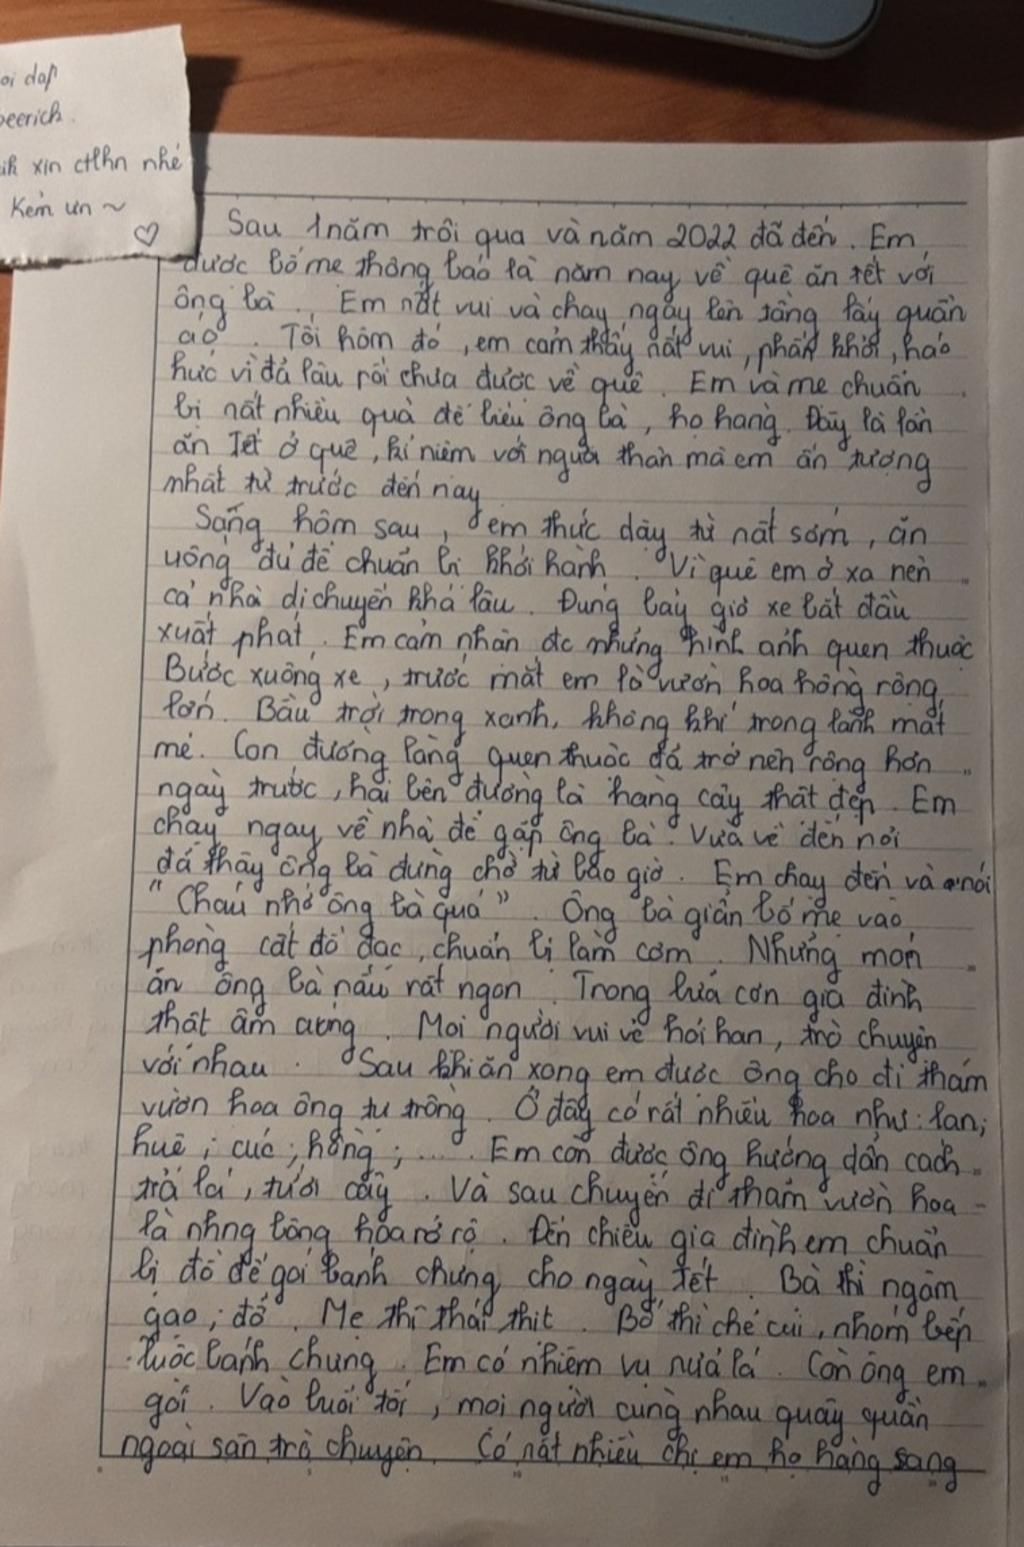 oi dap
peerich.
ih xin ctlhn nhé
Kẻm ưn ~
Sau 1 năm trôi qua và năm 2022 đã đến. Em
được bố mẹ thông báo là năm nay về quê ăn tết với
ông bà. Em nất vui và chạy ngay lên tầng lấy quần
áo. Tối hôm đó, em cảm thấy nất vui, phấn khởi, háo
hức vì đã lâu rồi chưa được về quê. Em và mẹ chuẩn
bị nất nhiều quà để biếu ông bà, họ hàng. Đây là lần
ăn Tết ở quê, kỉ niệm với người thân mà em ấn tượng
nhất từ trước đến nay
Sáng hôm sau, em thức dậy từ nất sớm, ăn
uống đủ để chuẩn bị khởi hành. Vì quê em ở xa nên
cả nhà di chuyển khá lâu. Đúng bảy giờ xe bắt đầu
xuất phát. Em cảm nhận đc những hình ảnh quen thuộc
Bước xuống xe, trước mắt em là vườn hoa hồng rộng
lớn. Bầu trời trong xanh, không khí trong lành mát
mẻ. Con đường làng quen thuộc đã trở nên rộng hơn
ngày trước, hai bên đường là hàng cây thật đẹp. Em
chạy ngay về nhà để gặp ông bà. Vừa về đến nơi
đã thấy ông bà đứng chờ từ bao giờ. Em chạy đến và nói
"Cháu nhớ ông bà quá". Ông bà giản bố mẹ vào
phòng cất đồ đạc, chuẩn bị làm cơm. Những món
ăn ông bà nấu rất ngon. Trong bữa cơn gia đình
thật ấm cúng. Mọi người vui vẻ hỏi han, trò chuyện
với nhau. Sau khi ăn xong em được ông cho đi thăm
vườn hoa ông tự trồng. Ở đây có rất nhiều hoa như: lan;
huệ; cúc; hồng; ..... Em còn được ông hướng dẫn cách
trả lá, tưới cây. Và sau chuyến đi thăm vườn hoa
là nhng bông hoa rớ rộ. Đến chiều gia đình em chuẩn
bị đồ để gói bánh chưng cho ngày tết. Bà thì ngâm
gạo; đỗ. Mẹ thì thái thịt. Bố thì chẻ củi, nhóm bếp
luộc bánh chưng. Em có nhiệm vụ rửa lá. Còn ông em
gói. Vào buổi tối, mọi người cùng nhau quây quần
ngoài sân trò chuyện. Có nất nhiều chị em họ hàng sang